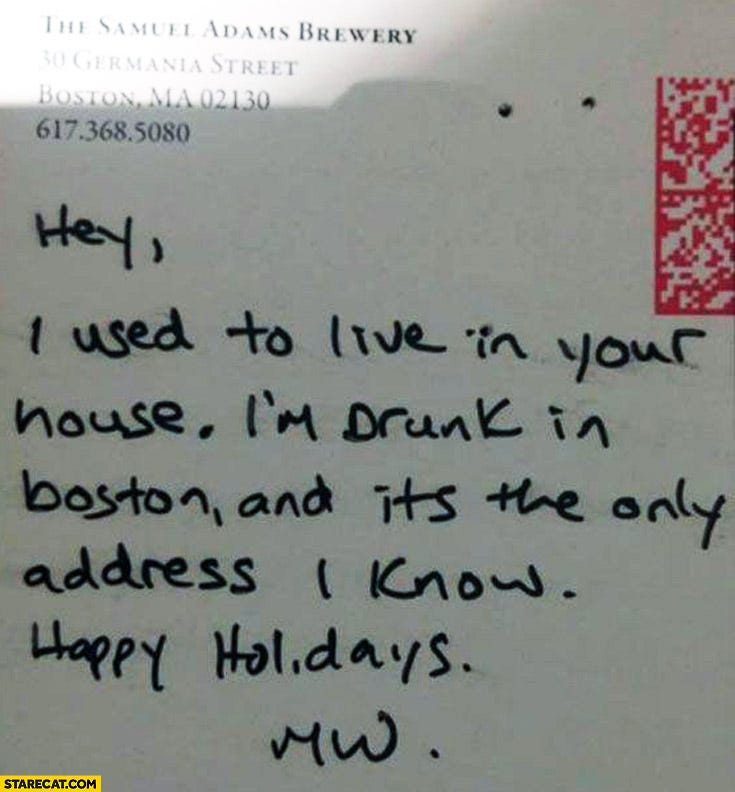 THE SAMUEL ADAMS BREWERY
30 GERMANIA STREET
BOSTON, MA 02130
617.368.5080
Hey,
I used to live in your
house. I'm Drunk in
boston, and its the only
address I know.
Happy Holidays.
MW.
STARECAT.COM